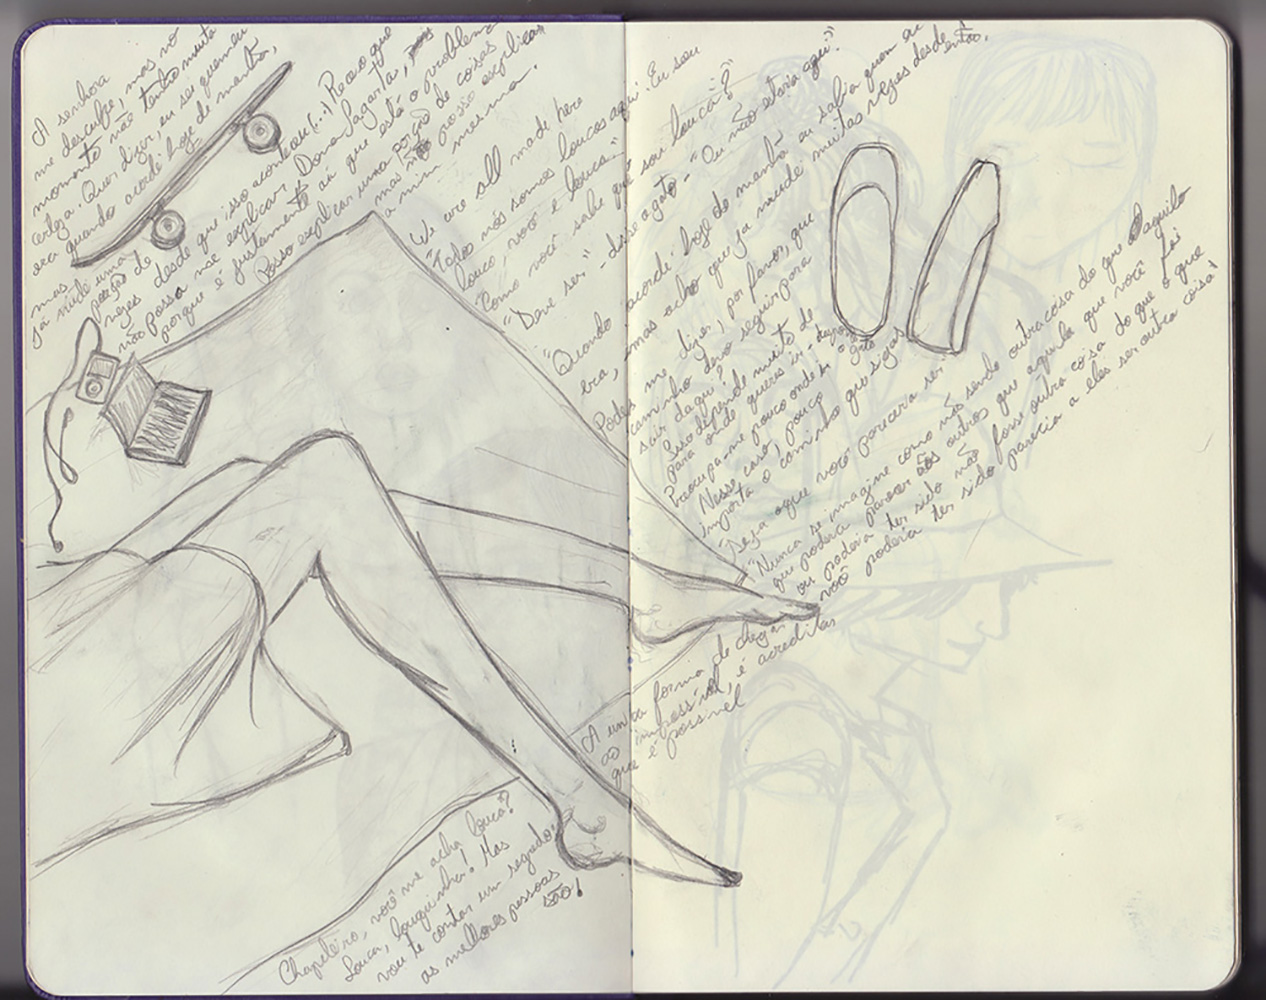 A senhora
me desculpe, mas no
momento não tenho muita
certeza. Quer dizer, eu sei quem eu
era quando acordei hoje de manhã,
mas já mudei uma
porção de
vezes desde que isso aconteceu (...) Receio que
não possa me explicar, Dona Lagarta,
porque é justamente aí que está o problema
Posso explicar uma porção de coisas
mas não posso explicar
a mim mesma.
We are all made here
"Todos nós somos loucos aqui. Eu sou
louco, você é louca."
"Como você sabe que sou louca?"
"Deve ser" - disse o gato - "Ou não estaria aqui".
"Quando acordei hoje de manhã eu sabia quem eu
era, mas acho que já mudei muitas
vezes desde então.
Podes me dizer, por favor, que
caminho devo seguir para
sair daqui?
Isso depende muito de
para onde queres ir - respondeu
o gato
Preocupa-me pouco onde ir
Nesse caso, pouco
importa o caminho que sigas
"Seja o que você parecera ser
"Nunca se imagine como não sendo outra coisa do que aquilo
que poderia parecer aos outros que aquela que você foi
ou poderia ter sido não fosse outra coisa do que o que
você poderia ter sido parecia a eles ser outra coisa!
A unica forma de chegar
ao impossível, é acreditar
que é possível
Chapeleiro, você me acha louca?
Louca, louquinha! Mas
vou te contar um segredo:
as melhores pessoas
são!